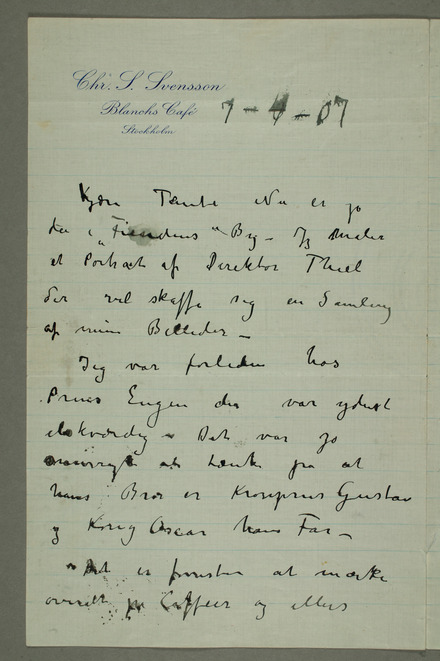 Chr. S. Svensson
Blanchs Café
Stockholm
7-4-07
Kjære Tante Nu er jo
du i „Fiendens“ By – Jeg maler
et Portræt af Direktør Thiel
der vil skaffe sig en Samling
af mine Billeder –
Jeg var forleden hos
Prins Eugen der var yderst
elskværdig – Det var jo
at tænke på at
hans Bror er Kronprins Gustav
og Kong Oscar hans Far –
Det er at mærke
overalt på Cafeer og ellers